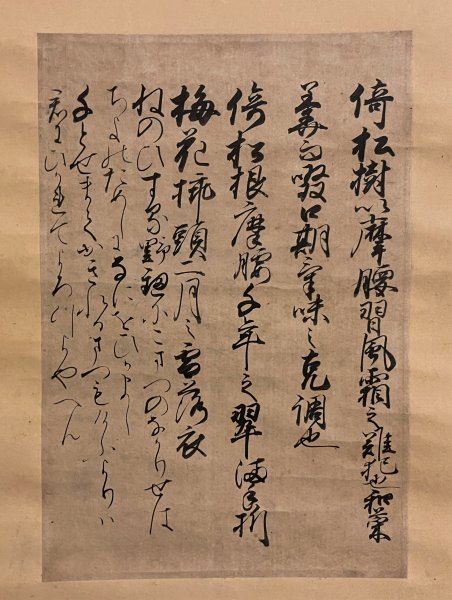 倚松樹以摩腰習風霜之難犯也和菜
羹而啜口期氣味之克調也
倚松根摩腰千年之翠満手折
梅花挿頭二月之雪落衣
ねのひする野邊にこまつのなかりせは
ちよのためしになにをひかまし
千とせまてかきれるまつもけふよりは
君にひかれてよろつよやへん